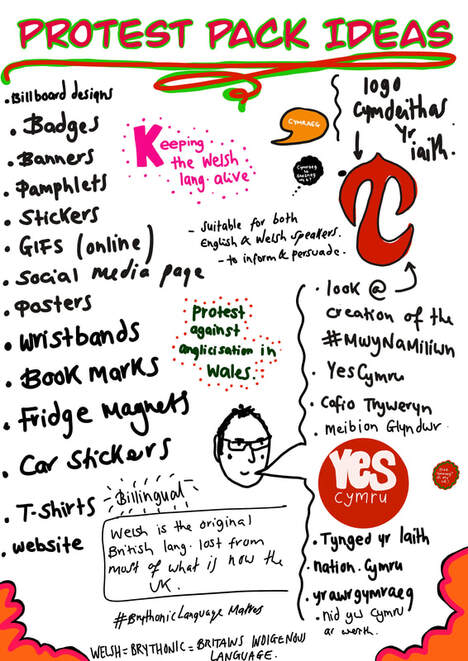 PROTEST PACK IDEAS
• Billboard designs
• Badges
• Banners
• Pamphlets
• Stickers
• GIFs (online)
• Social media page
• Posters
• Wristbands
• Book marks
• Fridge Magnets
• Car stickers
• T-shirts
• website
Keeping
the Welsh
lang. alive
CYMRAEG
- Suitable for both
English & Welsh speakers.
- to inform & persuade.
Protest
against
anglicisation in
Wales.
- Billingual -
Welsh is the original
British lang. lost from
most of what is now the
UK.
#Brythonic Language Matters
WELSH = BRYTHONIC = BRITAINS INDIGENOUS
LANGUAGE.
logo
Cymdeithas
yr
iaith
• look @
creation of the
#MwyNaMiliwn
• YesCymru
• Cofio Tryweryn
• Meibion Glyndwr
Yes
cymru
• Tynged yr Iaith
• nation.Cymru
• yrawrgymraeg
• nid yw Cymru
ar werth.